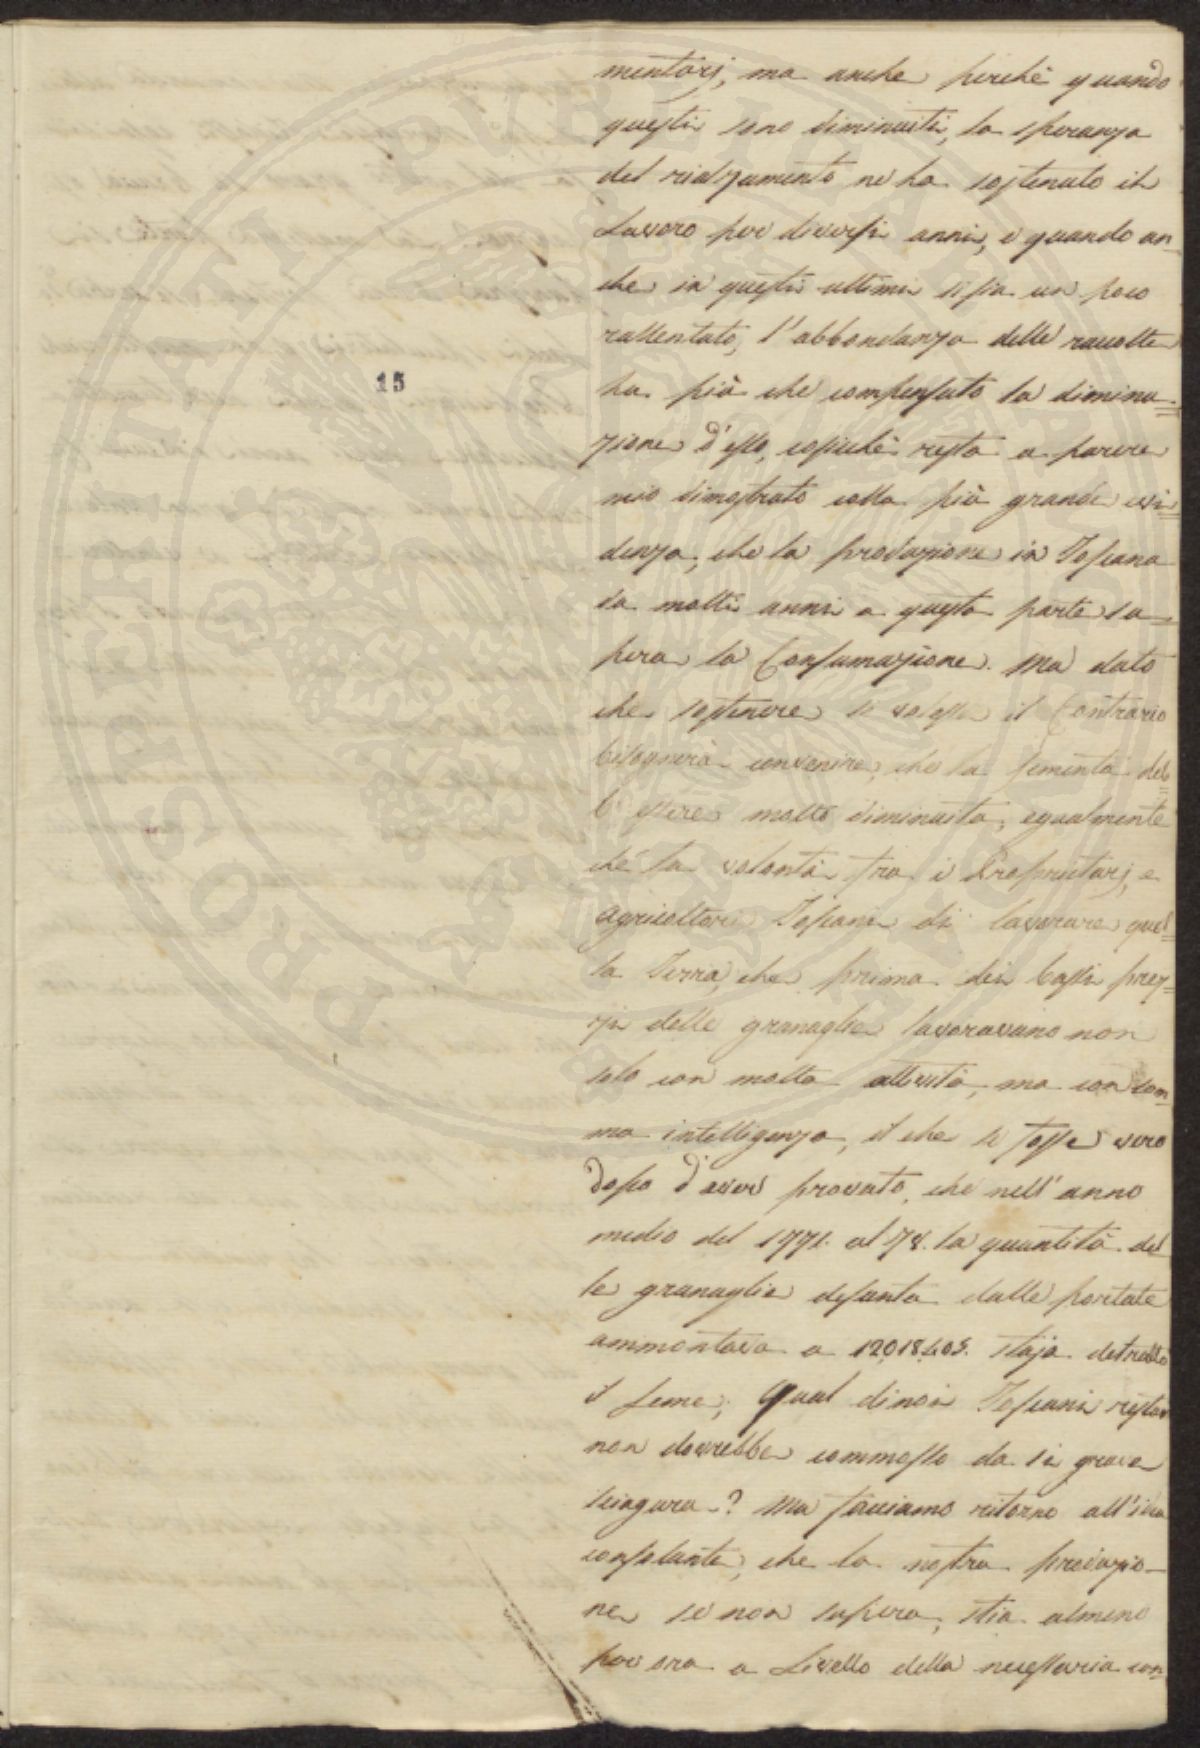 mentarj, ma anche perchè quando
questi sono diminuiti, la speranza
del rialzamento ne ha sostenuto il
Lavoro per diversi anni, e quando an-
che in questi ultimi si sia un poco
rallentato, l'abbondanza delle raccolte
15
ha più che compensato la diminu=
zione d'esso, cosicchè resta a parere
mio dimostrato colla più grande evi=
denza, che la produzione in Toscana
da molti anni a questa parte su=
pera la Consumazione. Ma dato
che sostenere si volesse il Contrario
bisognerà convenire, che la sementa deb=
b'essere molto diminuita, egualmente
chè la volontà tra i Proprietarj, e
agricoltori Toscani di lavorare quel=
la Terra, che prima dei bassi prez=
zi delle granaglie lavoravano non
solo con molta attività, ma con som=
ma intelligenza, il che se fosse vero
dopo d'aver provato, che nell'anno
medio del 1771. al 78. la quantità del
le granaglie desunta dalle portate
ammontava a 12018405. staja detratto
il seme; Qual di noi Toscani restar
non dovrebbe commosso da sì grave
sciagura-? Ma facciamo ritorno all'idea
consolante, che la nostra produzio-
ne se non supera, stia almeno
per ora a Livello della necessaria con=
PROSPERITATI PVBLICAE